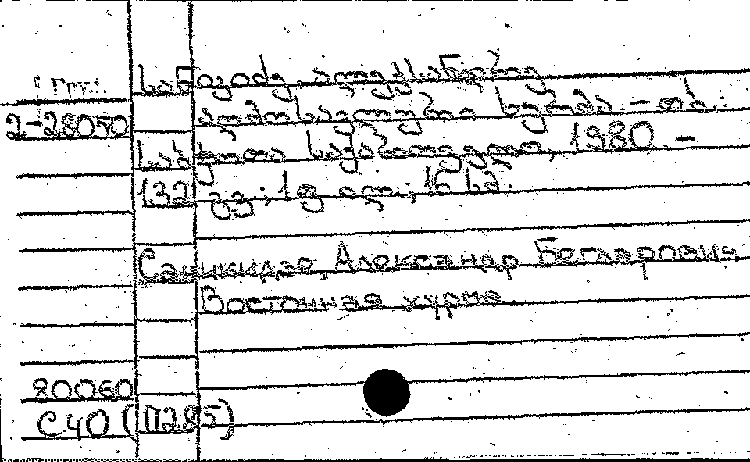 Груз.
სანიკიძე, ალექსანდრე
2-28050
აღმოსავლური ხურმა. - თბ.:
საბჭოთა საქართველო, 1980. -
132 გვ.; 19 ილ.; 16 სმ.
Саникидзе, Александр Бегларович
Восточная хурма
80060
С40 (П285)